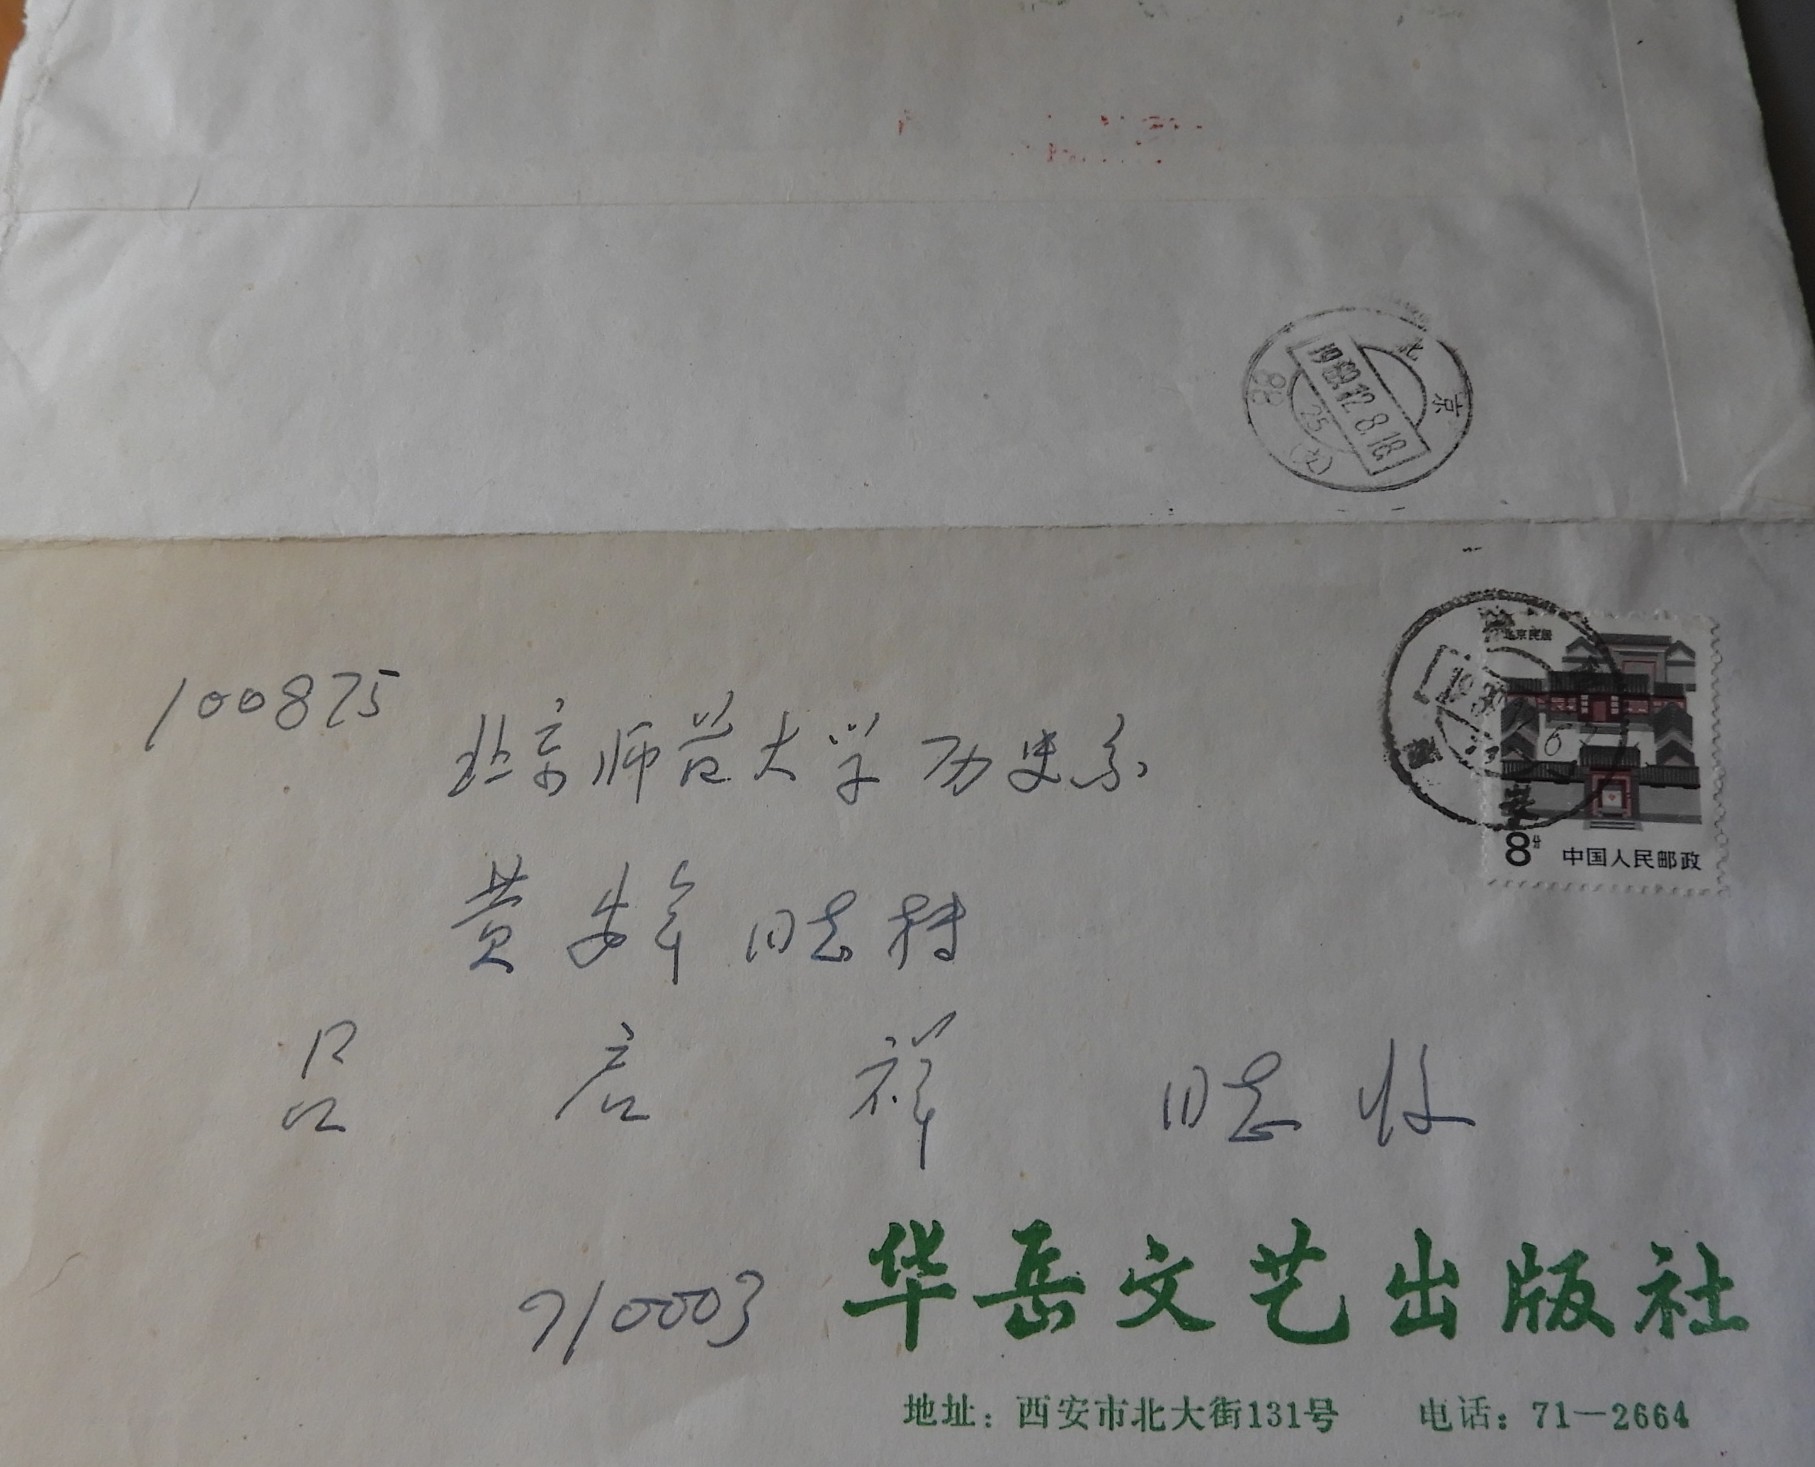 北京
1989.12.8.18
25
88
北京民居
8分 中国人民邮政
100875
北京师范大学历史系
黄安年同志转
吕启祥 同志收
710003
华岳文艺出版社
地址：西安市北大街131号 电话：71—2664